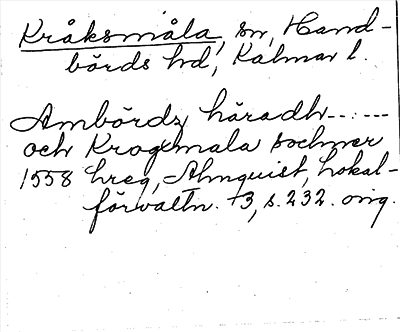 Kråksmåla, sn, Hand-
börds hd, Kalmar l.
Ambördz häradh -------
och Krogxmala sochner
1558 hreg, Almquist, Lokal-
förvaltn. +3, s. 232. orig.